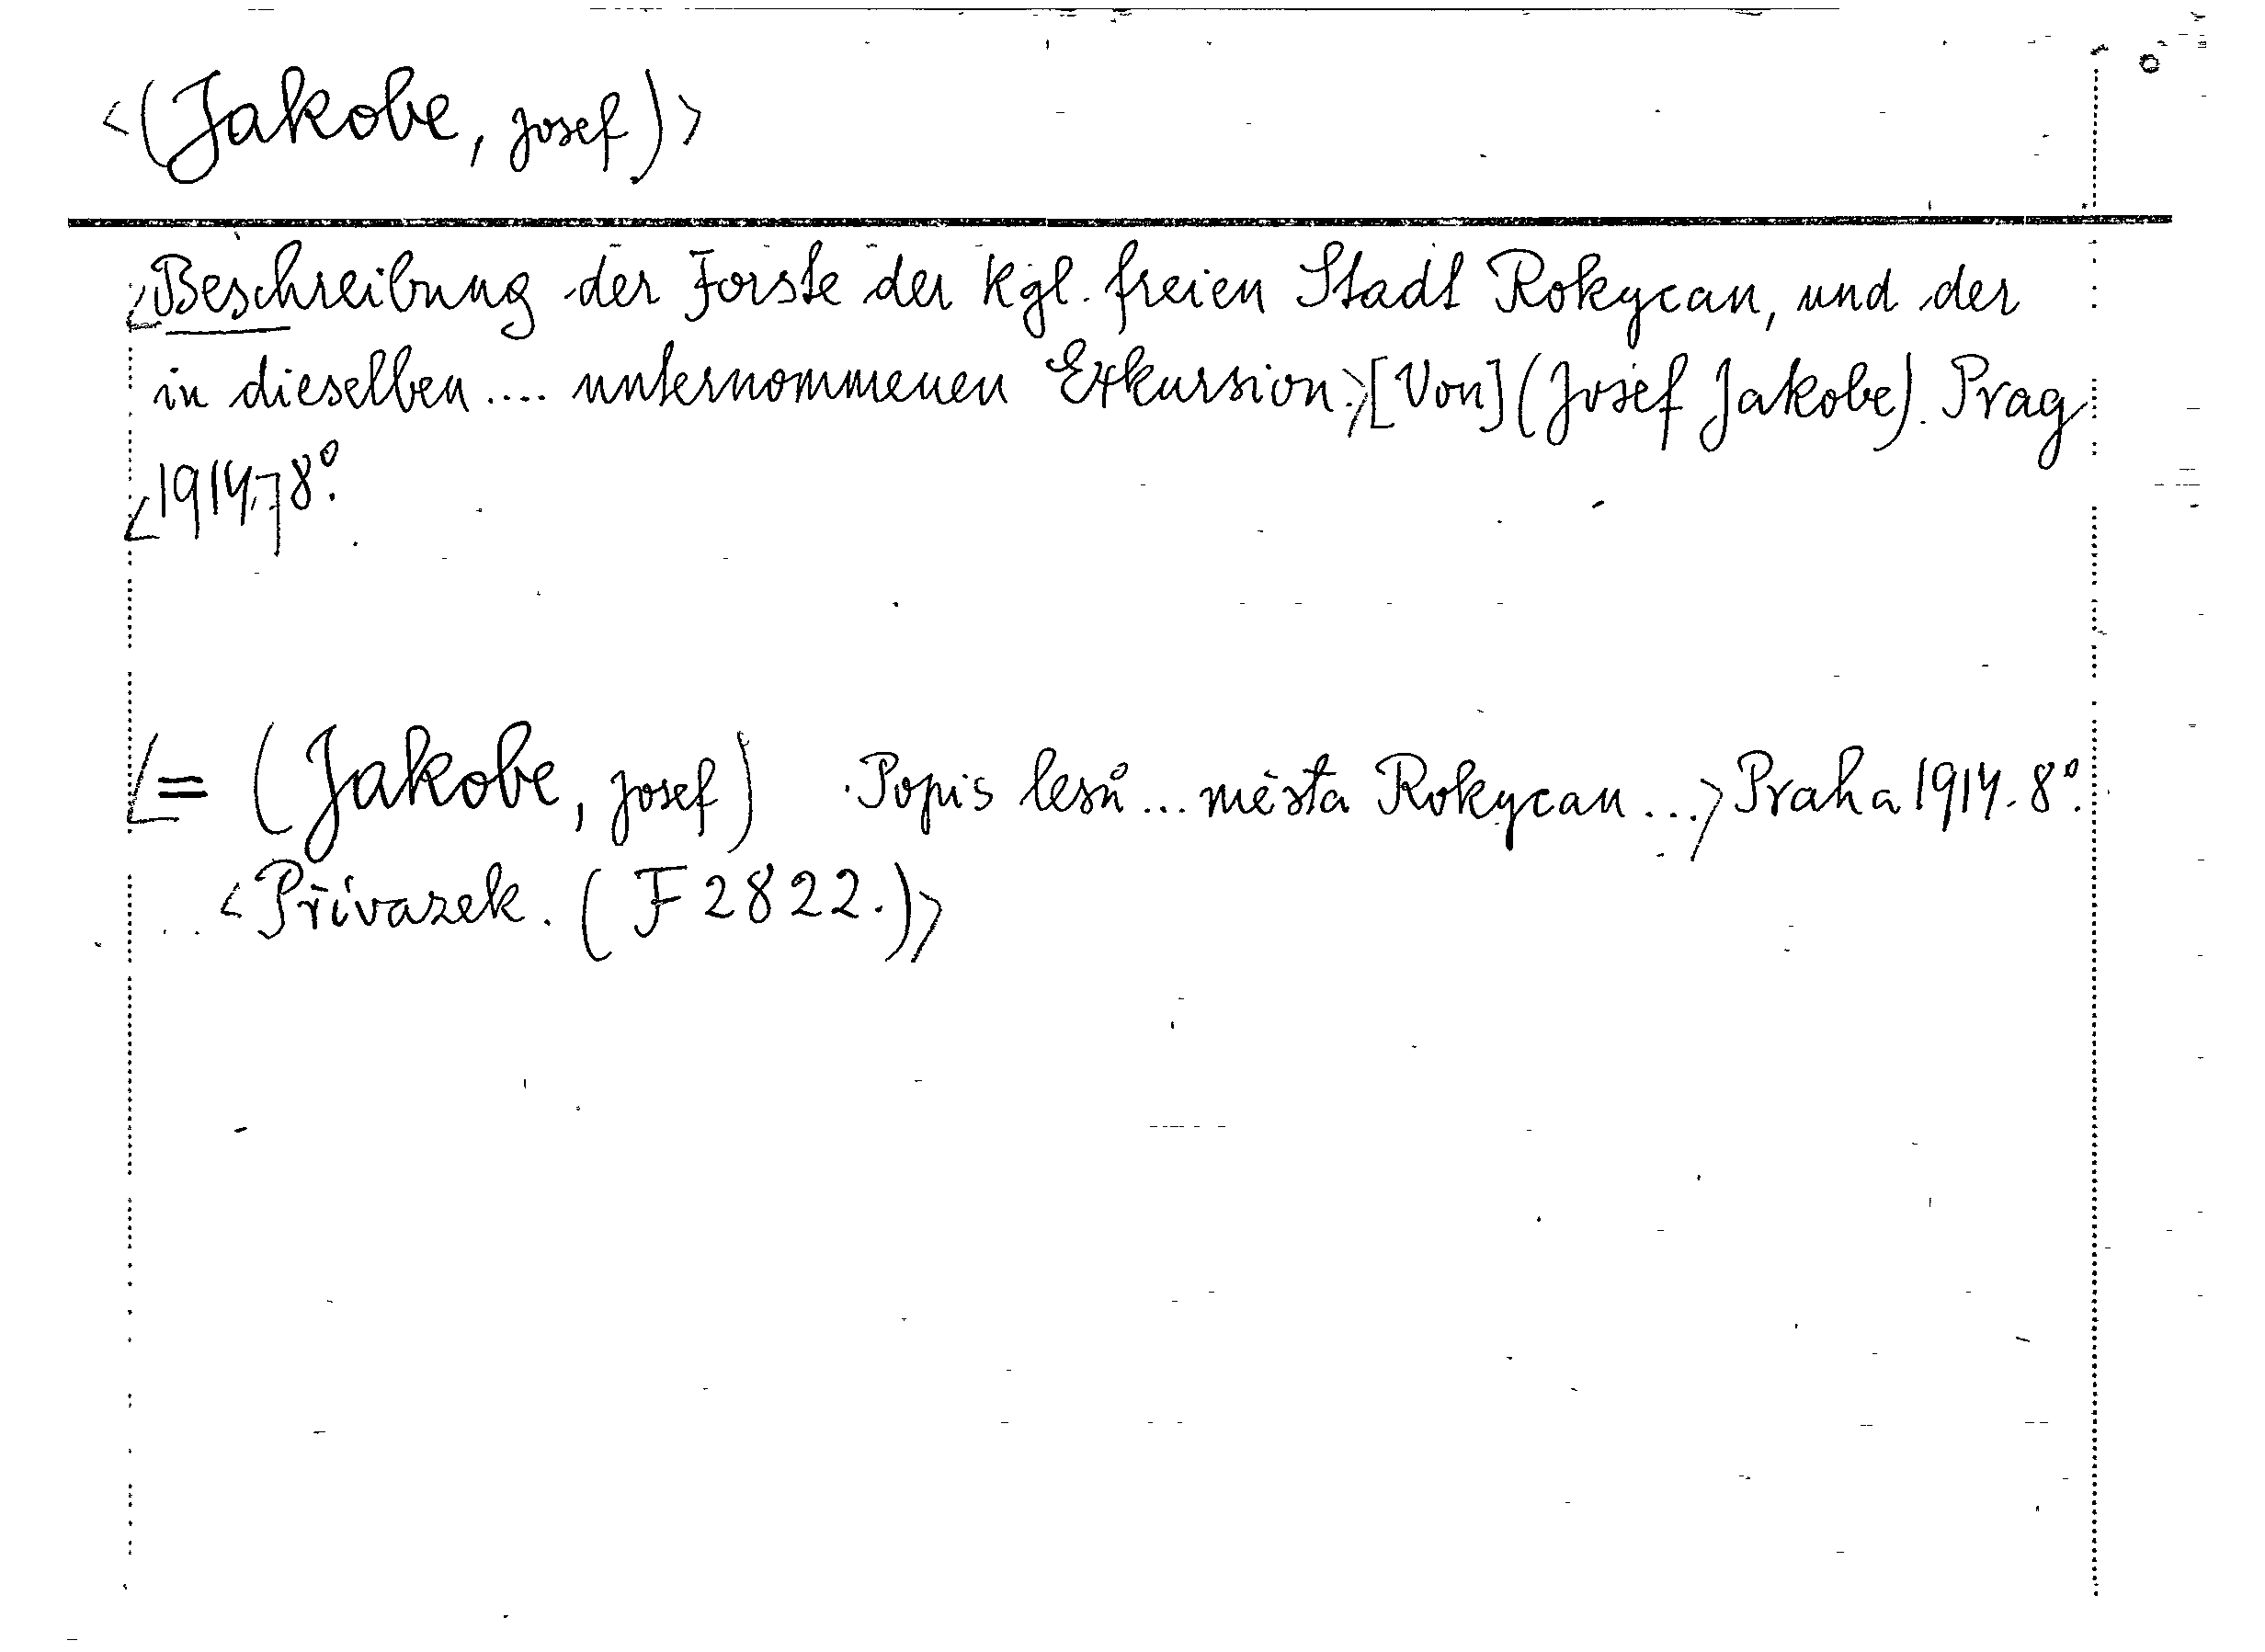 <(Jakobe, Josef)>
<Beschreibung der Forste der Kgl. freien Stadt Rokycan, und der
in dieselben .... unternommenen Exkursion.>[Von] (Josef Jakobe). Prag
<1914.> 8º.
<= (Jakobe, Josef) Popis lesů ... města Rokycan ...> Praha 1914. 8º.
<Přívazek. (F 2822.)>